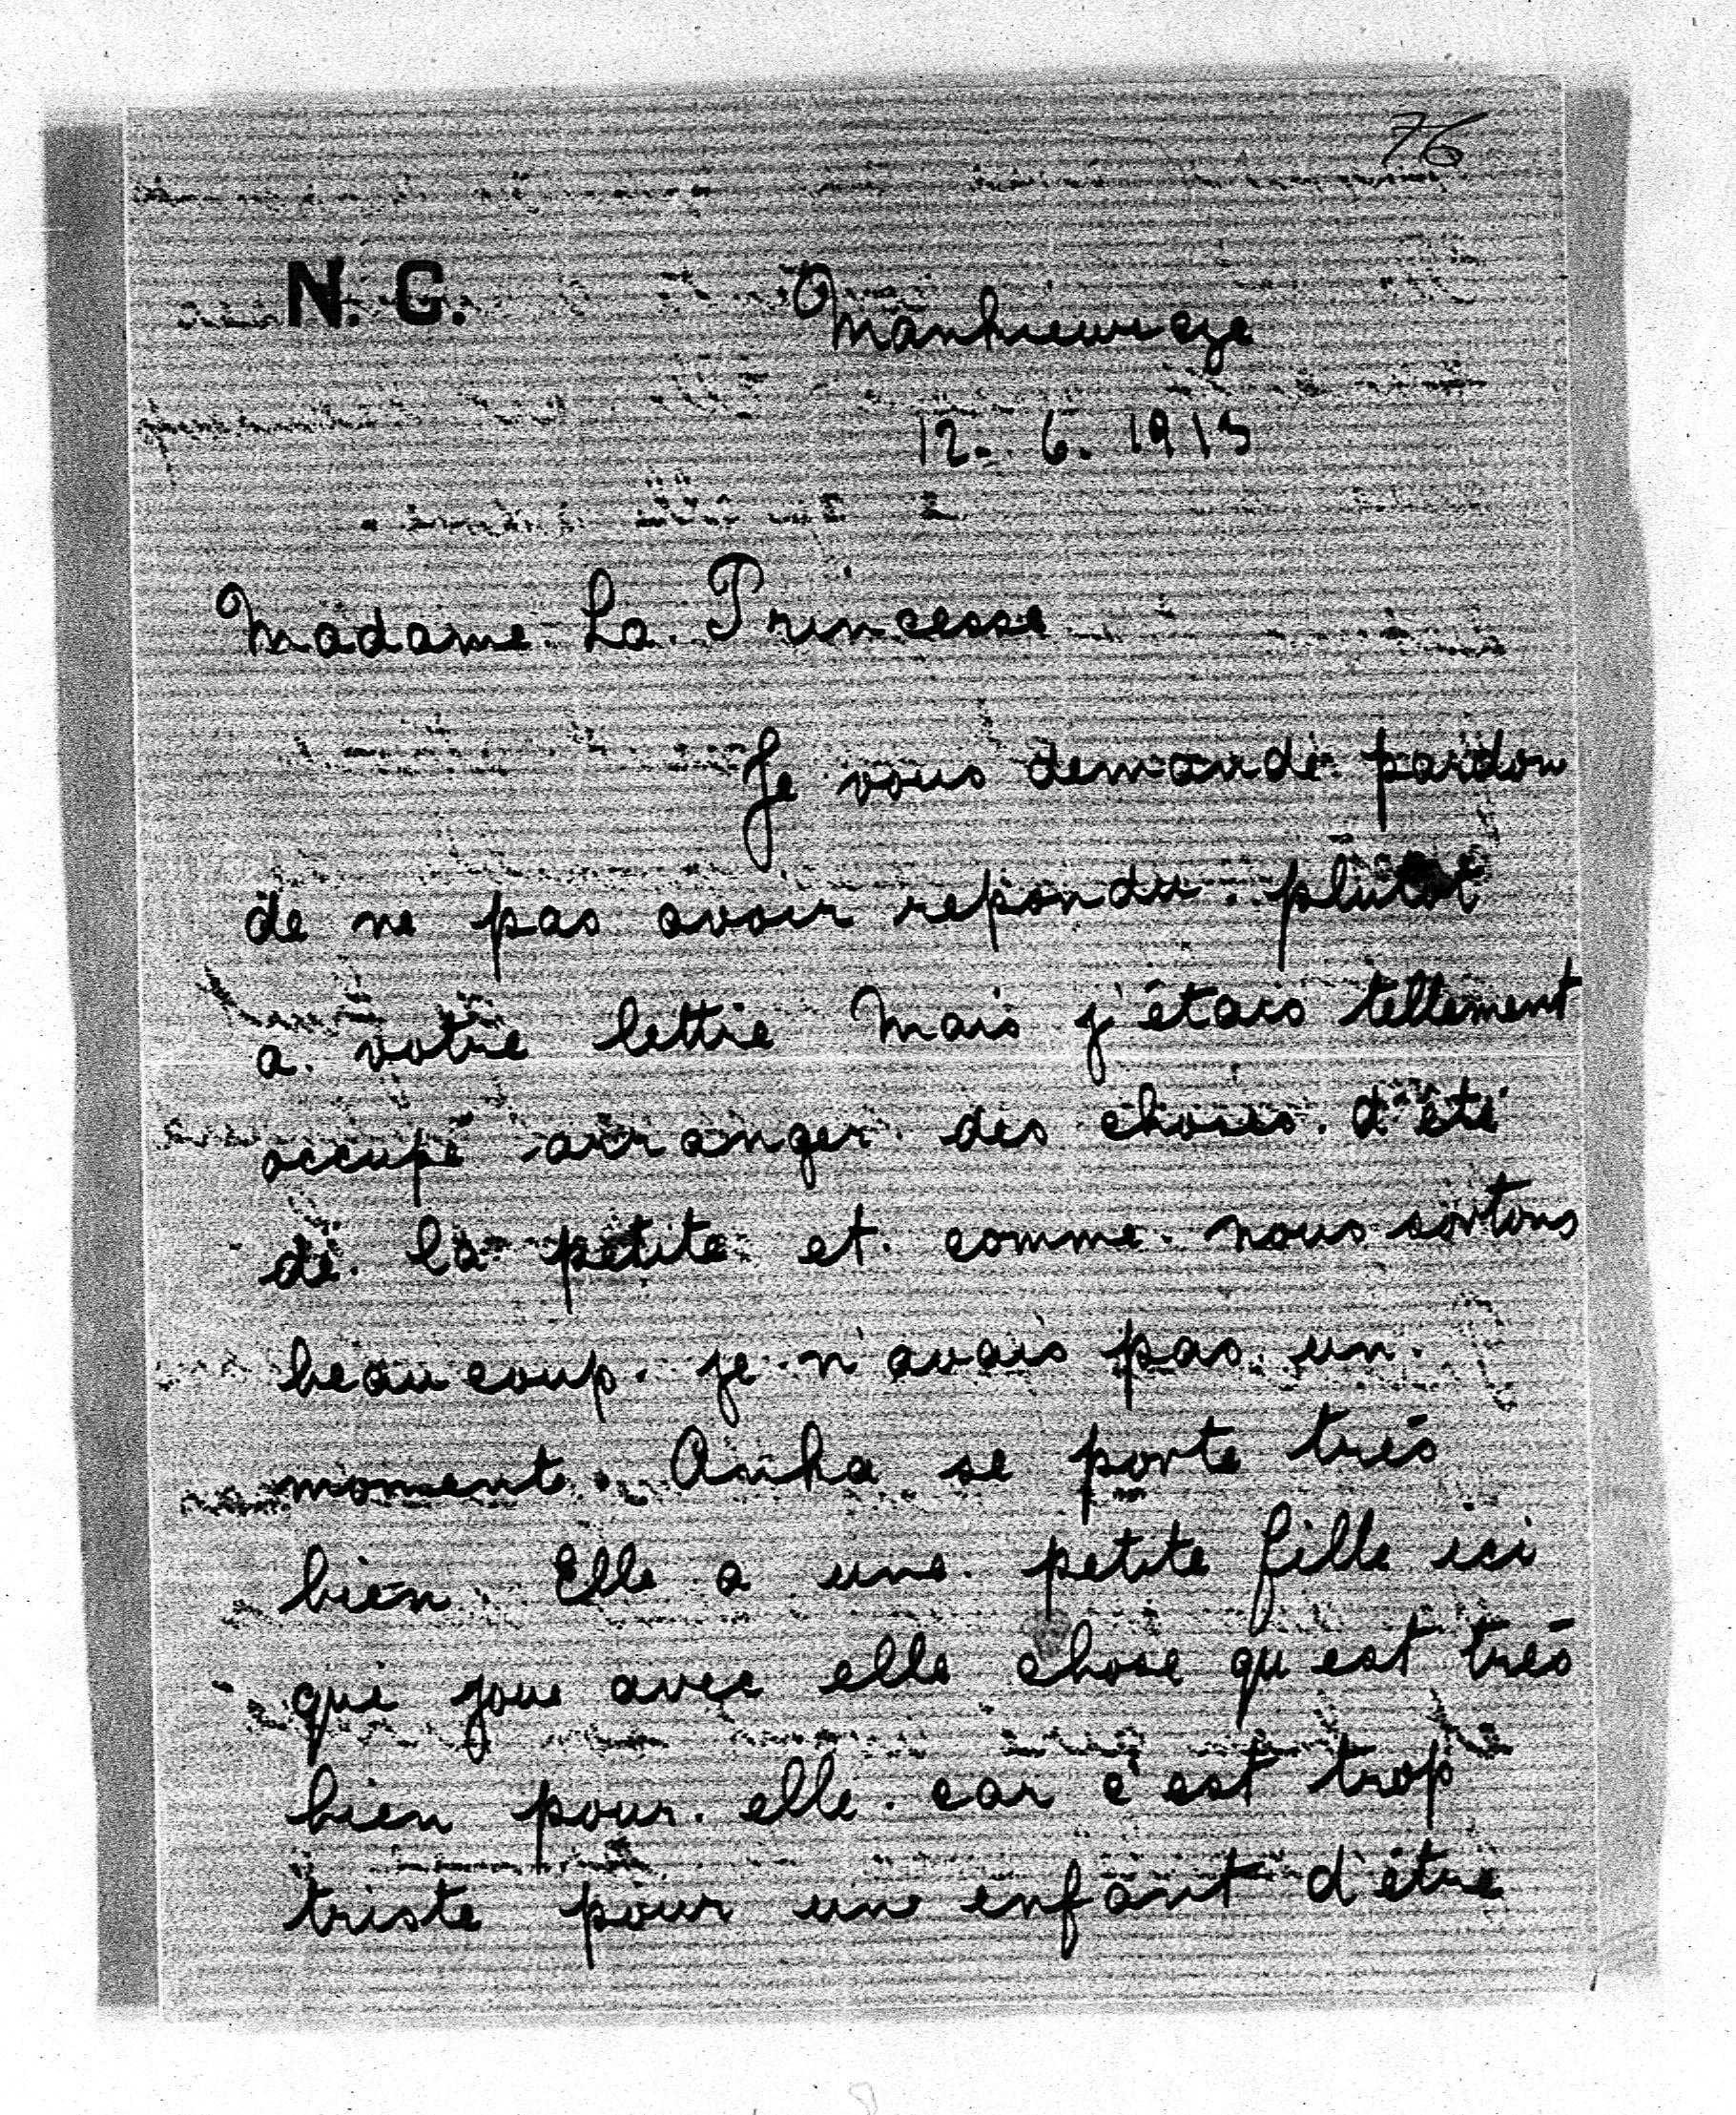 76
N. C.
Mankiewicze
12. 6. 1913
Madame La Princesse
Je vous demande pardon
de ne pas avoir repondu plutot
a votre lettre Mais j'étais tellement
occupé arranger des choses d'été
de la petite et comme nous sortons
beaucoup. je n'avais pas un
moment. Anka se porte trés
bien. Elle a une petite fille ici
qui joue avec elle chose qu'est trés
bien pour elle. car c'est trop
triste pour une enfant d'étre